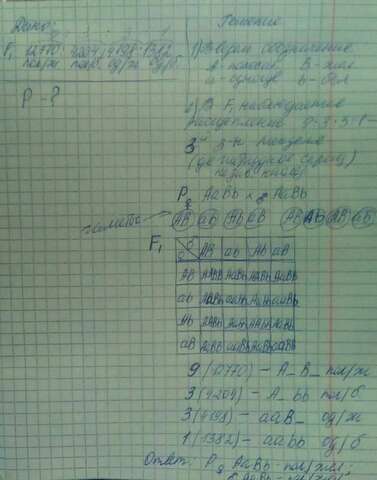 Дано:
F₁ 12770 : 4204 : 4198 : 1382
пол/ж. пол/б. од/ж од/б.
P - ?
Решение
1) Введем обозначение
A - полосат. B - жел
a - одноцв b - бел
2) В F₁ наблюдается
расщепление 9:3:3:1 -
3й з-н Менделя
P ♀ AaBb x ♂ AaBb
гаметы AB ab Ab aB AB Ab aB ab
F₁
♀ ♂ AB ab Ab aB
AB AABB AaBb AABb AaBB
ab AaBb aabb Aabb aaBb
Ab AABb Aabb AAbb AaBb
aB AaBB aaBb AaBb aaBB
9 (12770) - A_B_ пол/ж
3 (4204) - A_bb пол/б
3 (4198) - aaB_ од/ж
1 (1382) - aabb од/б
Ответ: P ♀ AaBb - пол/жел;
♂ AaBb - пол/жел.